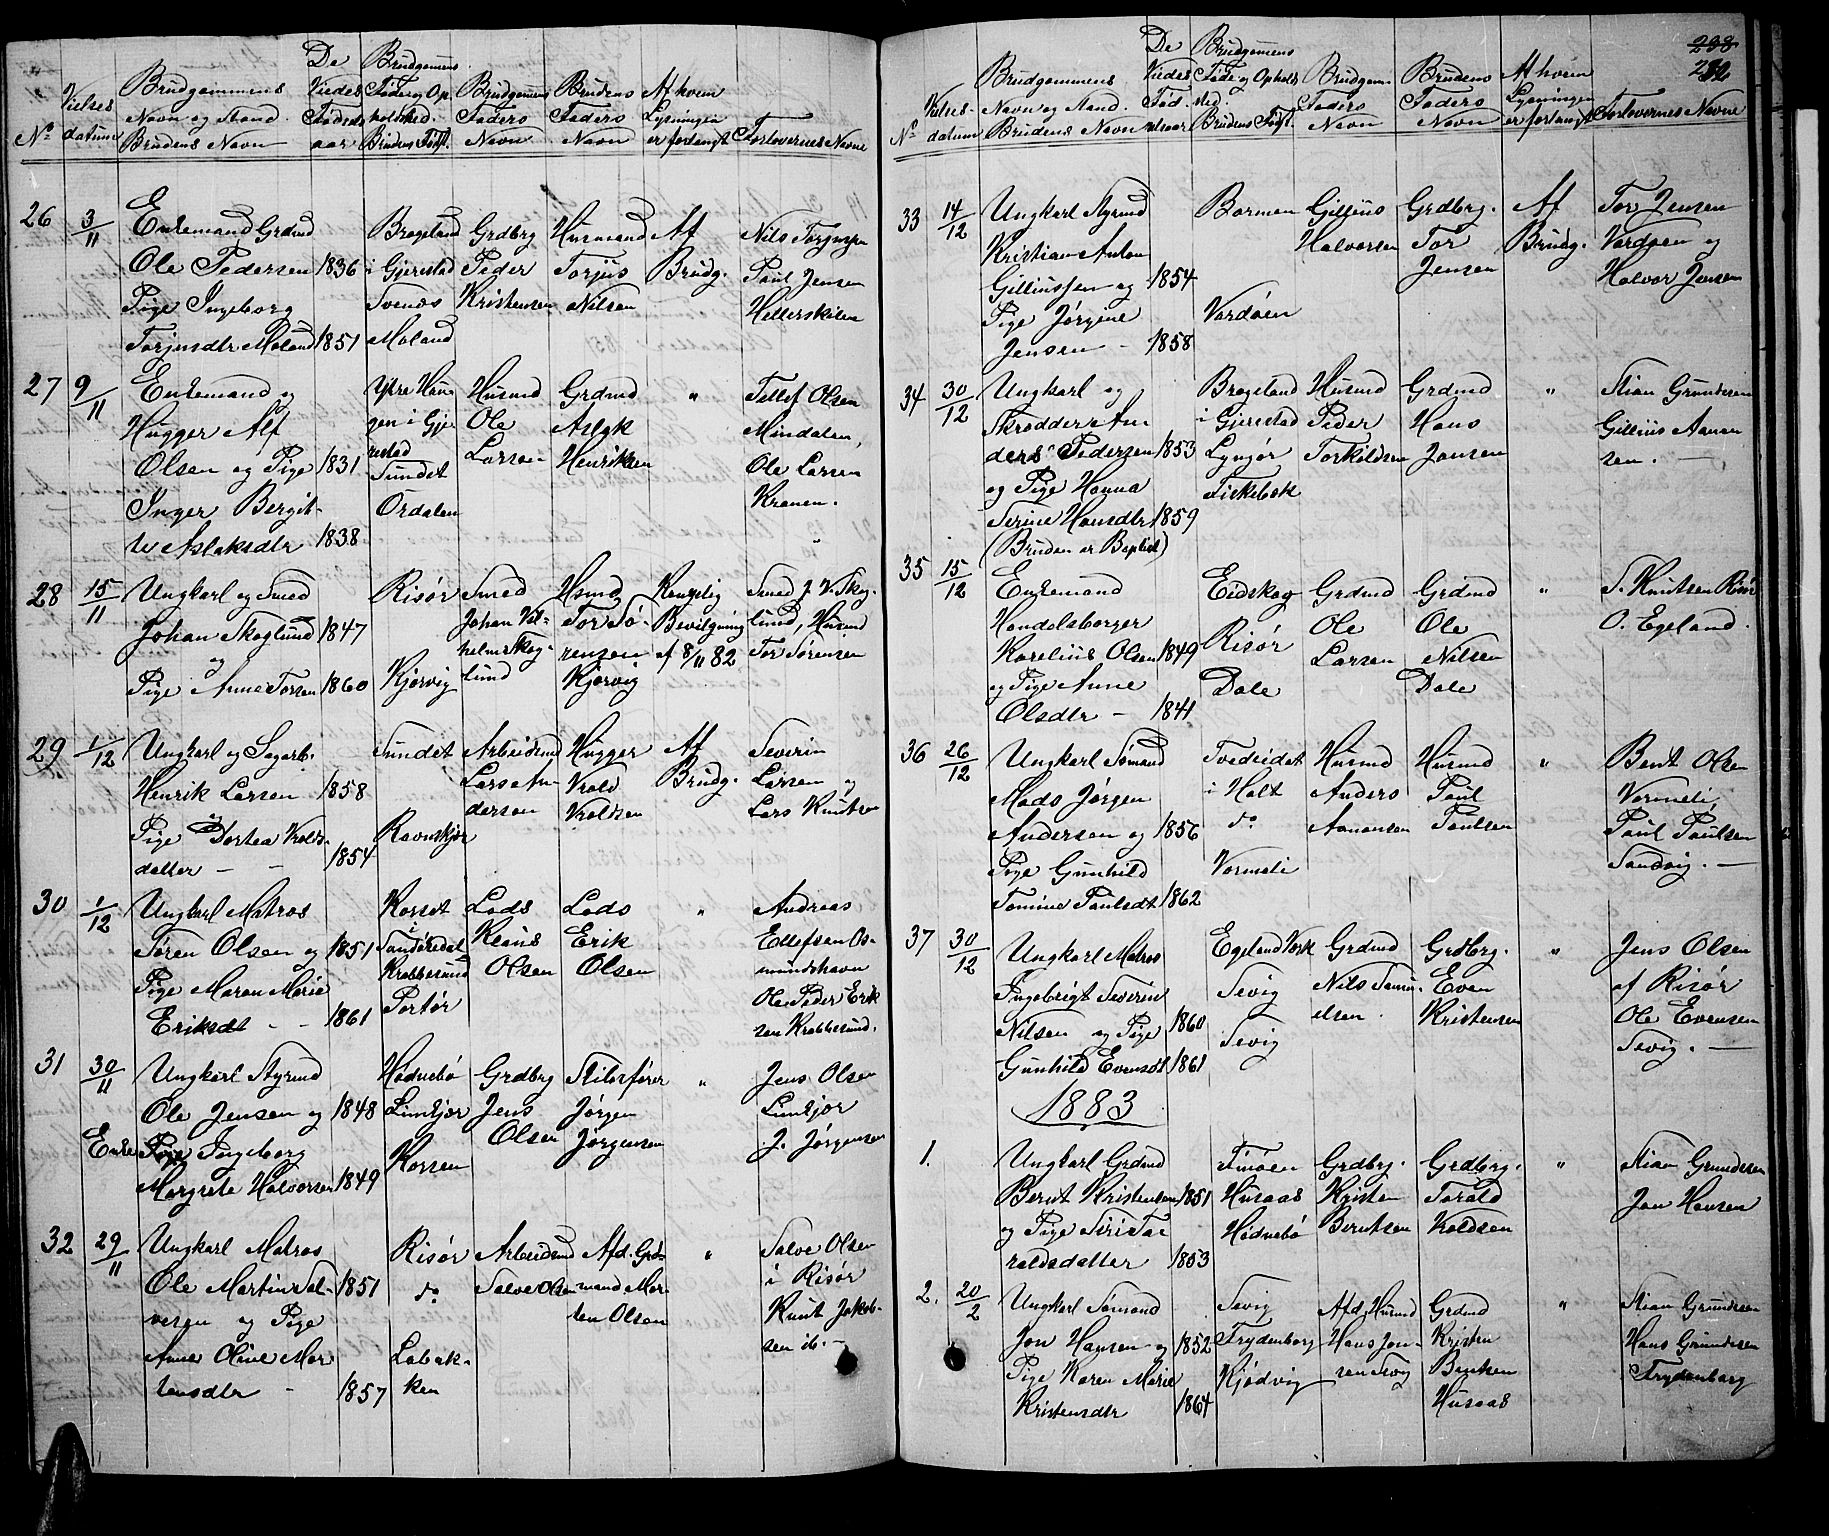 No
Vielses
datum
Brudgommens
Navn og Stand.
Brudens Navn
De
Viedes
Fødsels
aar
Brudgommens
Føde og Op-
holdsted.
Brudens Fødst.
Brudgommens
Faders
Navn
Brudens
Faders
Navn
Af hvem
Lysningen
er forlangt
Forlovernes Navne
26 3/11
Enkemand Grdmd
Ole Pedersen 1836
Pige Ingeborg
Torjusdtr Moland 1851
Brogeland
i Gjerestad
Svenæs
Moland
Grdbrg
Peder
Kristensen
Husmand
Torjus
Nilsen
Af
Brudg.
Nils Torjusen
Paul Jensen
Hellerskilen
27 9/11
Enkemand og
Hugger Alf
Olsen og Pige 1831
Inger Bergit-
te Aslaksdtr 1838
Ytre Hau-
gen i Gje-
restad
Sundet
Ørdalen
Husmd
Ole
Larsen
Grdmd
Aslak
Henriksen
"
Tellef Olsen
Mindalen,
Ole Larsen
Kranen.
28 15/11
Ungkarl og Smed
Johan Skoglund 1847
og
Pige Anne Torsen 1860
Risør
Kjørvig
Smed
Johan Vil-
helm Skog-
lund
Hsmd
Tor Sø-
rensen
Kjørvig
Kongelig
Bevilgning
af 8/11 82
Smed J. V. Skog-
lund, Husmd
Tor Sørensen
29 1/12
Ungkarl og Sagarb.
Henrik Larsen 1858
og
Pige Dortea Vrolds-
datter - - 1854
Sundet
Ravnskjær
Arbeidsmd
Lars An-
dersen
Hugger
Vrold
Vroldsen
Af
Brudg.
Severin
Larsen og
Lars Knutsen
30 1/12
Ungkarl Matros
Søren Olsen og 1851
Pige Maren Marie
Eriksdt - - 1861
Kosset
i
Sandøkedal
Krabbesund
Portør
Lods
Klaus
Olsen
Lods
Erik
Olsen
"
Andreas
Ellefsen Os-
mundshavn
Ole Peder Erik
sen Krabbesund.
31 30/11
Ungkarl Styrmd
Ole Jensen og 1848
Enke Pige Ingeborg
Margrete Halvorsen 1849
Hødnebø
Limkjær
Kossen
Grdbrg
Jens
Olsen
Skibsfører
Jørgen
Jørgensen
"
Jens Olsen
Limkjær
J. Jørgensen
32 29/11
Ungkarl Matros
Ole Martin Sal- 1851
vesen og Pige
Anne Oline Mor
tensdtr - 1857
Risør
do
Labak-
ken
Arbeidsmd
Salve Olsen
Afd. Grd-
mand Mor-
ten Olsen
"
Salve Olsen
i Risør
Knut Jakob-
sen ib. -
238
232
No
Vielses-
datum
Brudgommens
Navn og Stand.
Brudens Navn
De
Viedes
Fød-
selsaar
Brudgommens
Føde og Opholds
sted.
Brudens Fødst.
Brudgom
Faders
Navn
Brudens
Faders
Navn
Af hvem
Lysningen
er forlangt
Forlovernes Navne
33 14/12
Ungkarl Styrmd
Kristian Anton
Gilliussen og 1854
Pige Jørgine
Jensen - 1858
Barmen
Vardøen
Gillius
Halvorsen
Grdbrg.
Tor
Jensen
Af
Brudg.
Tor Jensen
Vardøen og
Halvor Jensen
34 30/12
Ungkarl og
Skrædder An
ders Pedersen 1853
og Pige Hanna
Serine Hansdtr 1859
(Bruden er Baptist)
Brogeland
i Gjerestad
Lyngør
Fiskebæk
Husmd
Peder
Torkildsen
Grdmd
Hans
Jansen
"
Stian Grundesen
Gillius Aanon
sen. -
35 15/12
Enkemand
Handelsborger
Karelius Olsen 1849
og Pige Anne
Olsdtr - 1841
Eidskog
Risør
Dale
Grdmd
Ole
Larsen
Grdmd
Ole
Nilsen
Dale
"
S. Knutsen Risør
O. Egeland.
36 26/12
Ungkarl Sømand
Mads Jørgen
Andersen og 1856
Pige Gunhild
Tomine Paulsdt 1862
Tvedeidet
i Holt
do
Vormeli
Husmd
Anders
Aanonsen
Husmd
Paul
Paulsen
"
Bent Olsen
Vormeli,
Paul Paulsen
Sandvig. -
37 30/12
Ungkarl Matros
Ingebrigt Severin
Nilsen og Pige 1860
Gunhild Evensdt 1861
Egeland Værk
Sevig
Sevig
Grdmd
Nils Samu-
elsen.
Grdbrg.
Even
Kristensen
"
Jens Olsen
af Risør
Ole Evensen
Sevig. -
1883
1.
Ungkarl Grdmd
Bernt Kristensen 1851
og Pige Siri Ta
raldsdatter 1853
Finøen
Husaas
Hødnebø
Grdbrg.
Kristen
Berntsen
Grdbrg.
Torald
Kroldsen
"
Stian Grundesen
Jan Hansen
2. 20/2
Ungkarl Sømand
Jon Hansen og 1852
Pige Karen Marie
Kristensdtr 1864
Sevig
Frydenborg
Kjødvig
Afd. Husmd
Hans Jon-
sen Sevig
Grdmd
Kristen
Bentsen
Husaas
"
Stian Grundesen
Hans Grundesen
Frydenborg